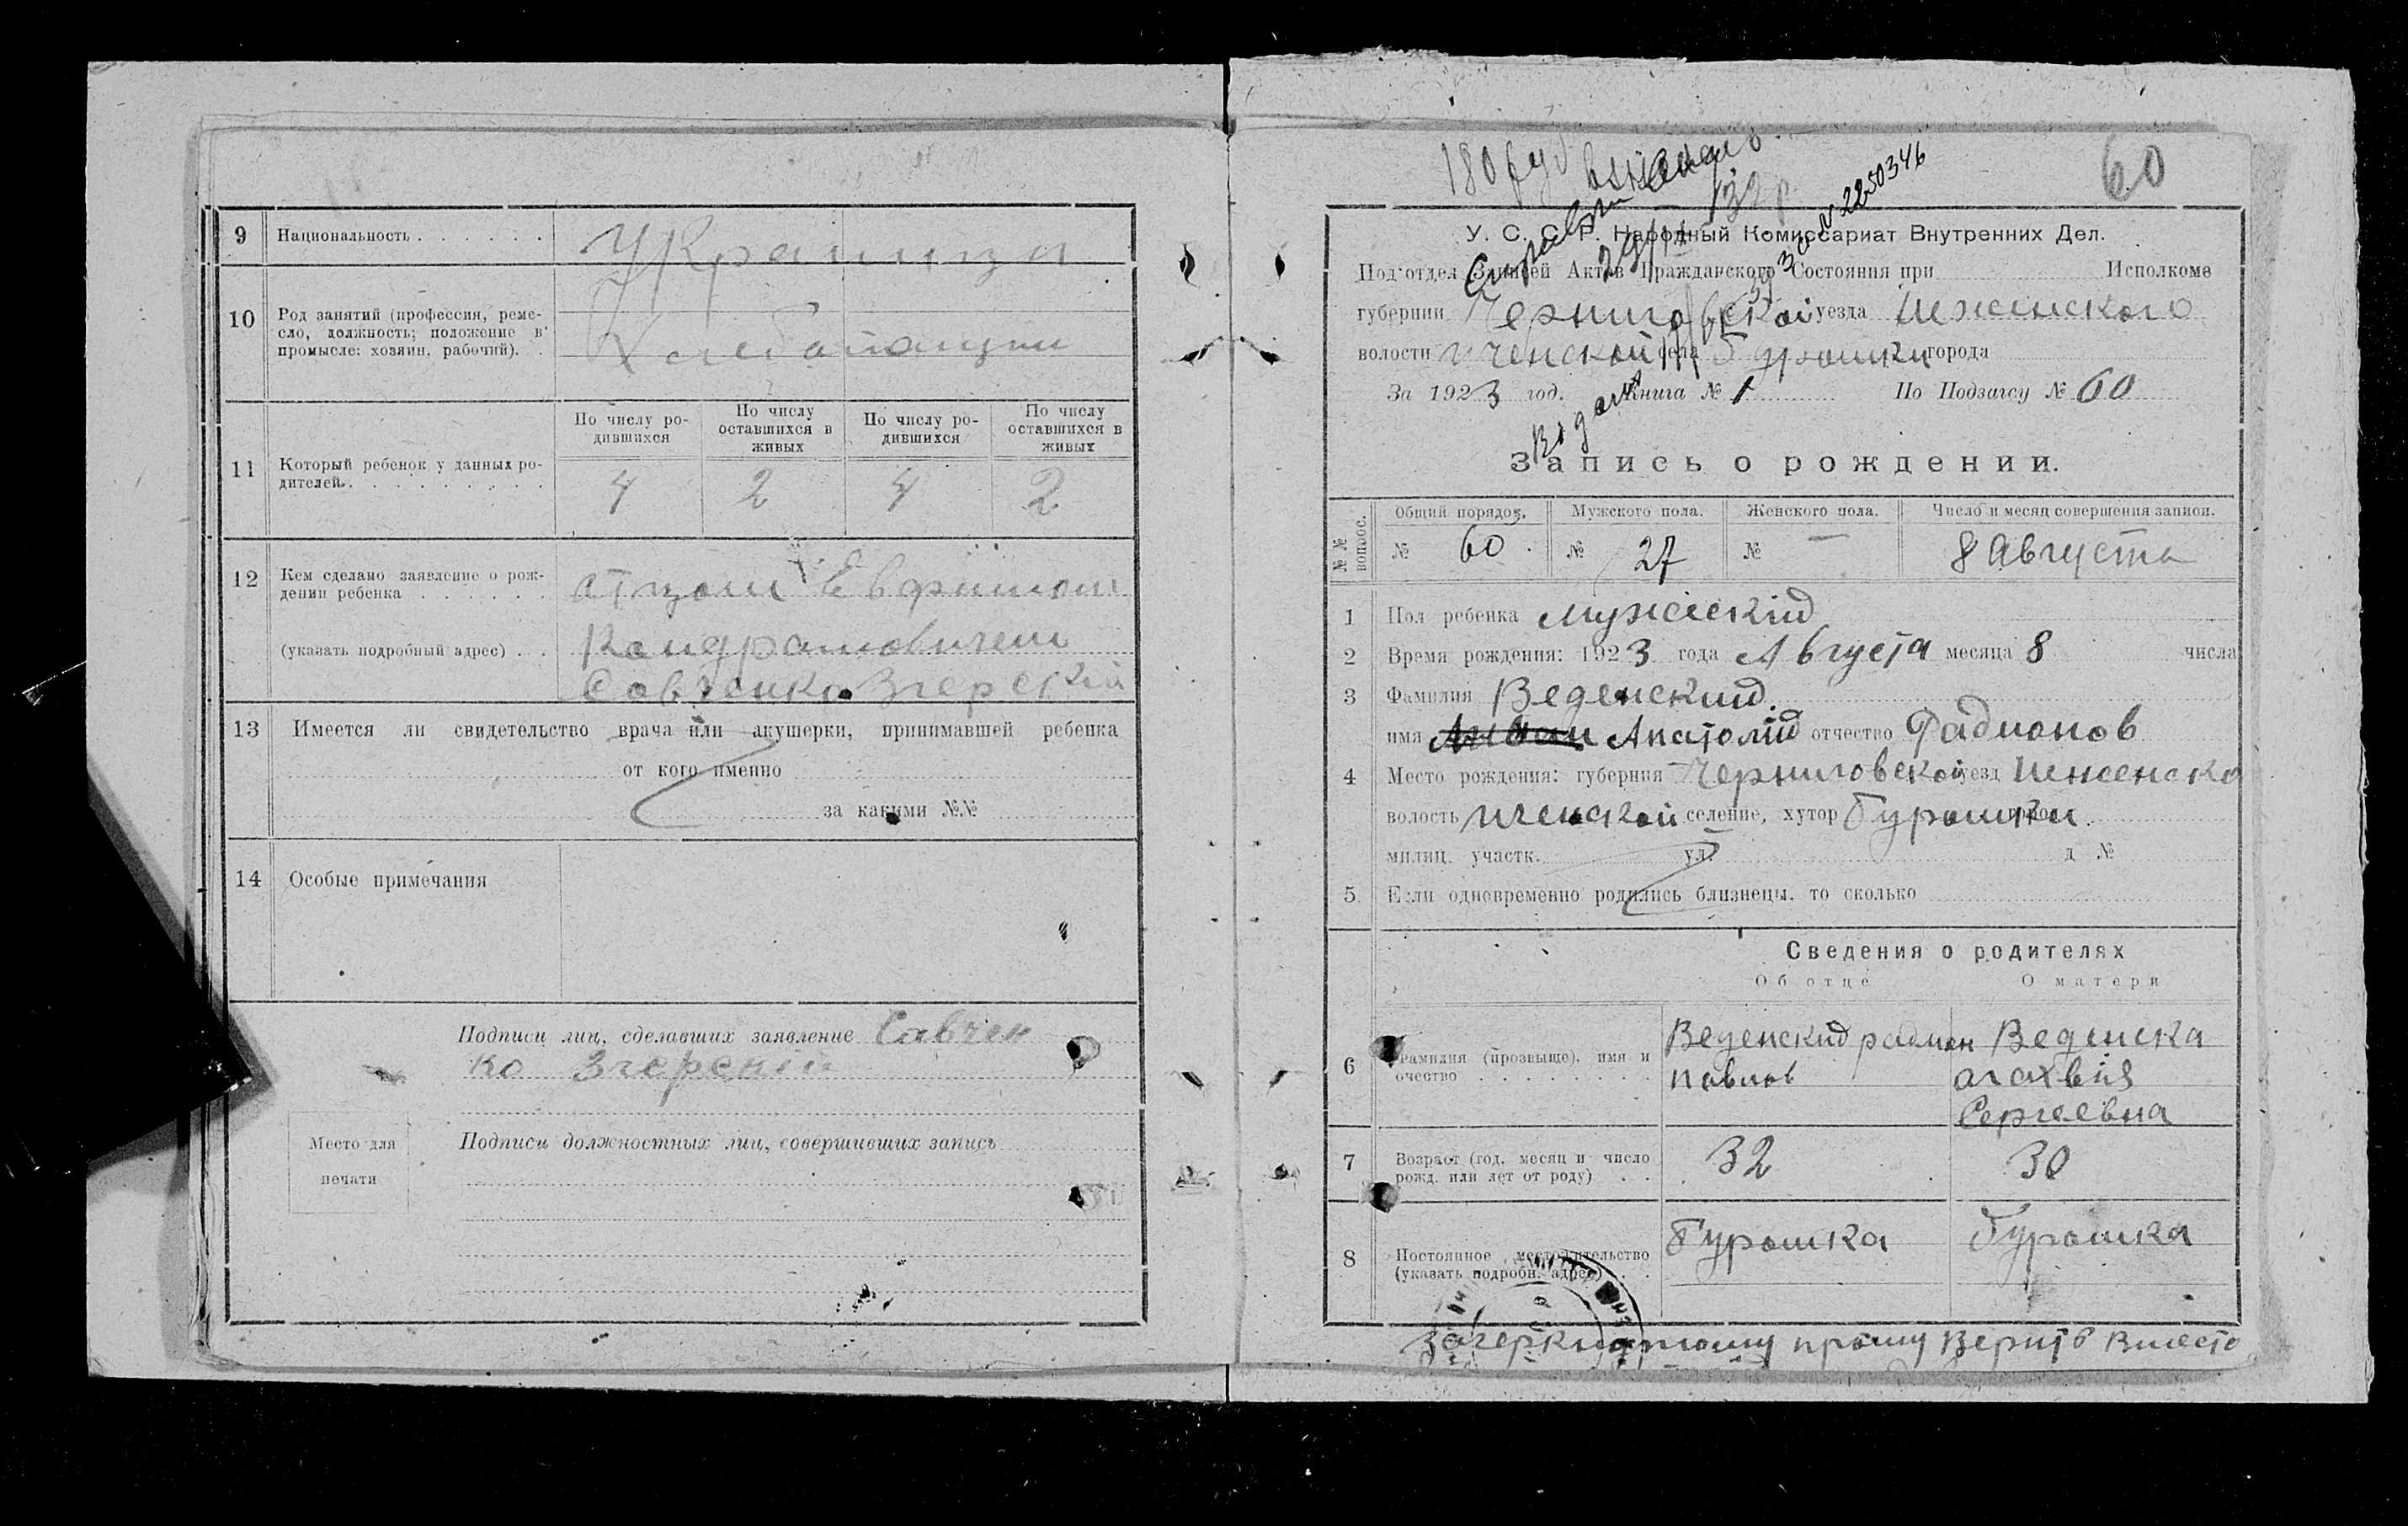 9 Национальность . . . . . . Украинци
10 Род занятий (профессия, реме-
сло, должность; положение в
промысле: хозяин, рабочий). .
11 Который ребенок у данных ро-
дителей. . . . . . . . . .
По числу ро-
дившихся
По числу
оставшихся в
живых
По числу ро-
дившихся
По числу
оставшихся в
живых
4 2 4 2
12 Кем сделано заявление о рож-
дении ребенка . . . . . .
(указать подробный адрес) . .
атцом Евфимом
Кондратовичем
Савченко Згерский
13 Имеется ли свидетельство врача или акушерки, принимавшей ребенка
от кого именно
за какими №№
14 Особые примечания
Подписи лиц, сделавших заявление Савчен
ко Згерский
Место для
печати
Подписи должностных лиц, совершивших запись
180 руб
№ 2250346
60
У. С. С. Р. Народный Комиссариат Внутренних Дел.
Под'отдел Записей Актов Гражданского Состояния при Исполкоме
губернии Черниговской уезда Неженского
волости Иченской села Бурошки города
За 1923 год. Книга № 1 По Подзагсу № 60
Запись о рождении.
№№ вопрос.
Общий порядок. Мужского пола. Женского пола. Число и месяц совершения записи.
№ 60. № 27 № — 8 Августа
1 Пол ребенка мужеский
2 Время рождения: 1923 года Августа месяца 8 числа
3 Фамилия Веденский.
имя Анатолий отчество Радионов
4 Место рождения: губерния Черниговской уезд Неженско
волость Иченской селение, хутор Бурошки
милиц. участк. ул. д №
5 Если одновременно родились близнецы, то сколько
Сведения о родителях
Об отце О матери
6 Фамилия (прозвище), имя и
очество . . . . . . . .
Веденский радион
павлов
Веденска
агахвия
Сергеевна
7 Возраст (год, месяц и число
рожд. или лет от роду) . .
32 30
8 Постоянное местожительство
(указать подробн. адрес) . .
Бурошка Бурошка
прошу Верить Вместо